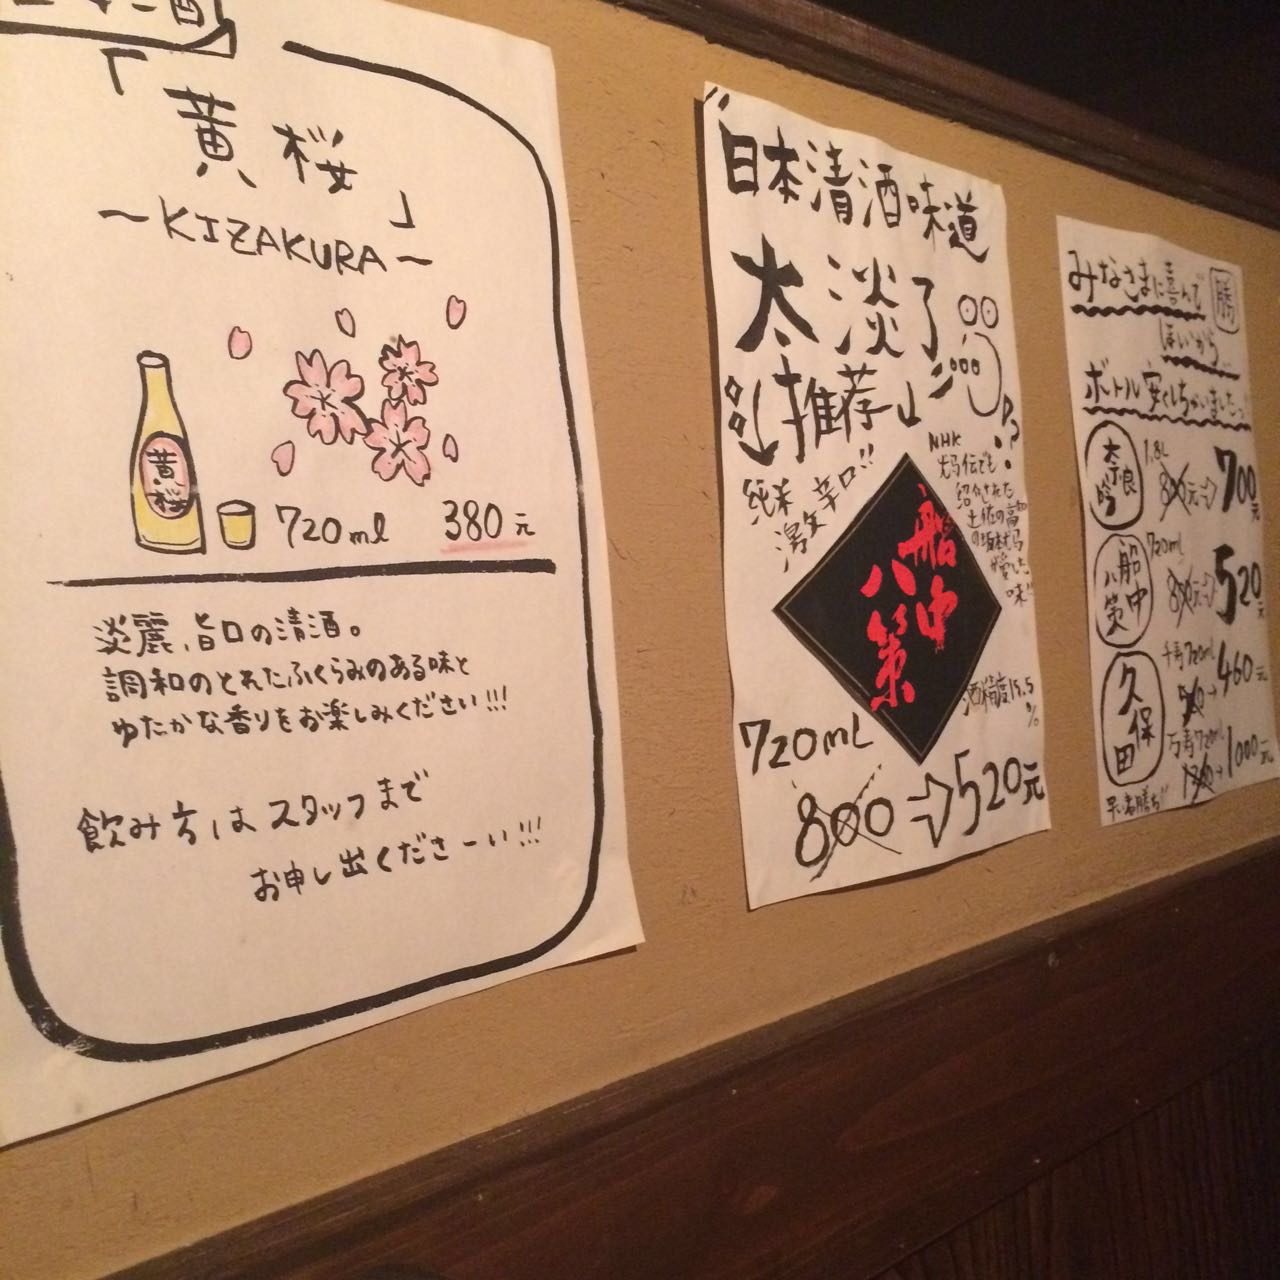 「黄桜」
～KIZAKURA～
黄桜
720ml 380元
淡麗、旨口の清酒。
調和のとれたふくらみのある味と
ゆたかな香りをお楽しみください!!!
飲み方はスタッフまで
お申し出くださーい!!!
日本清酒味道
太淡了
推荐
純米
激辛口!!
NHK
龙馬伝でも
紹介された
土佐の高知
の坂本龙馬
が愛した
味!!
船中
八策
酒精度15.5
%
720mL
800⇒520元
みなさまに喜んで
勝
ほしいから…
ボトル安くしちゃいましたっ
奈良吟
1.8L
800元⇒700元
船中八策
720ml
800元⇒520元
久保田
千寿720ml
→460元
万寿720ml
→1000元
早い者勝ち!!